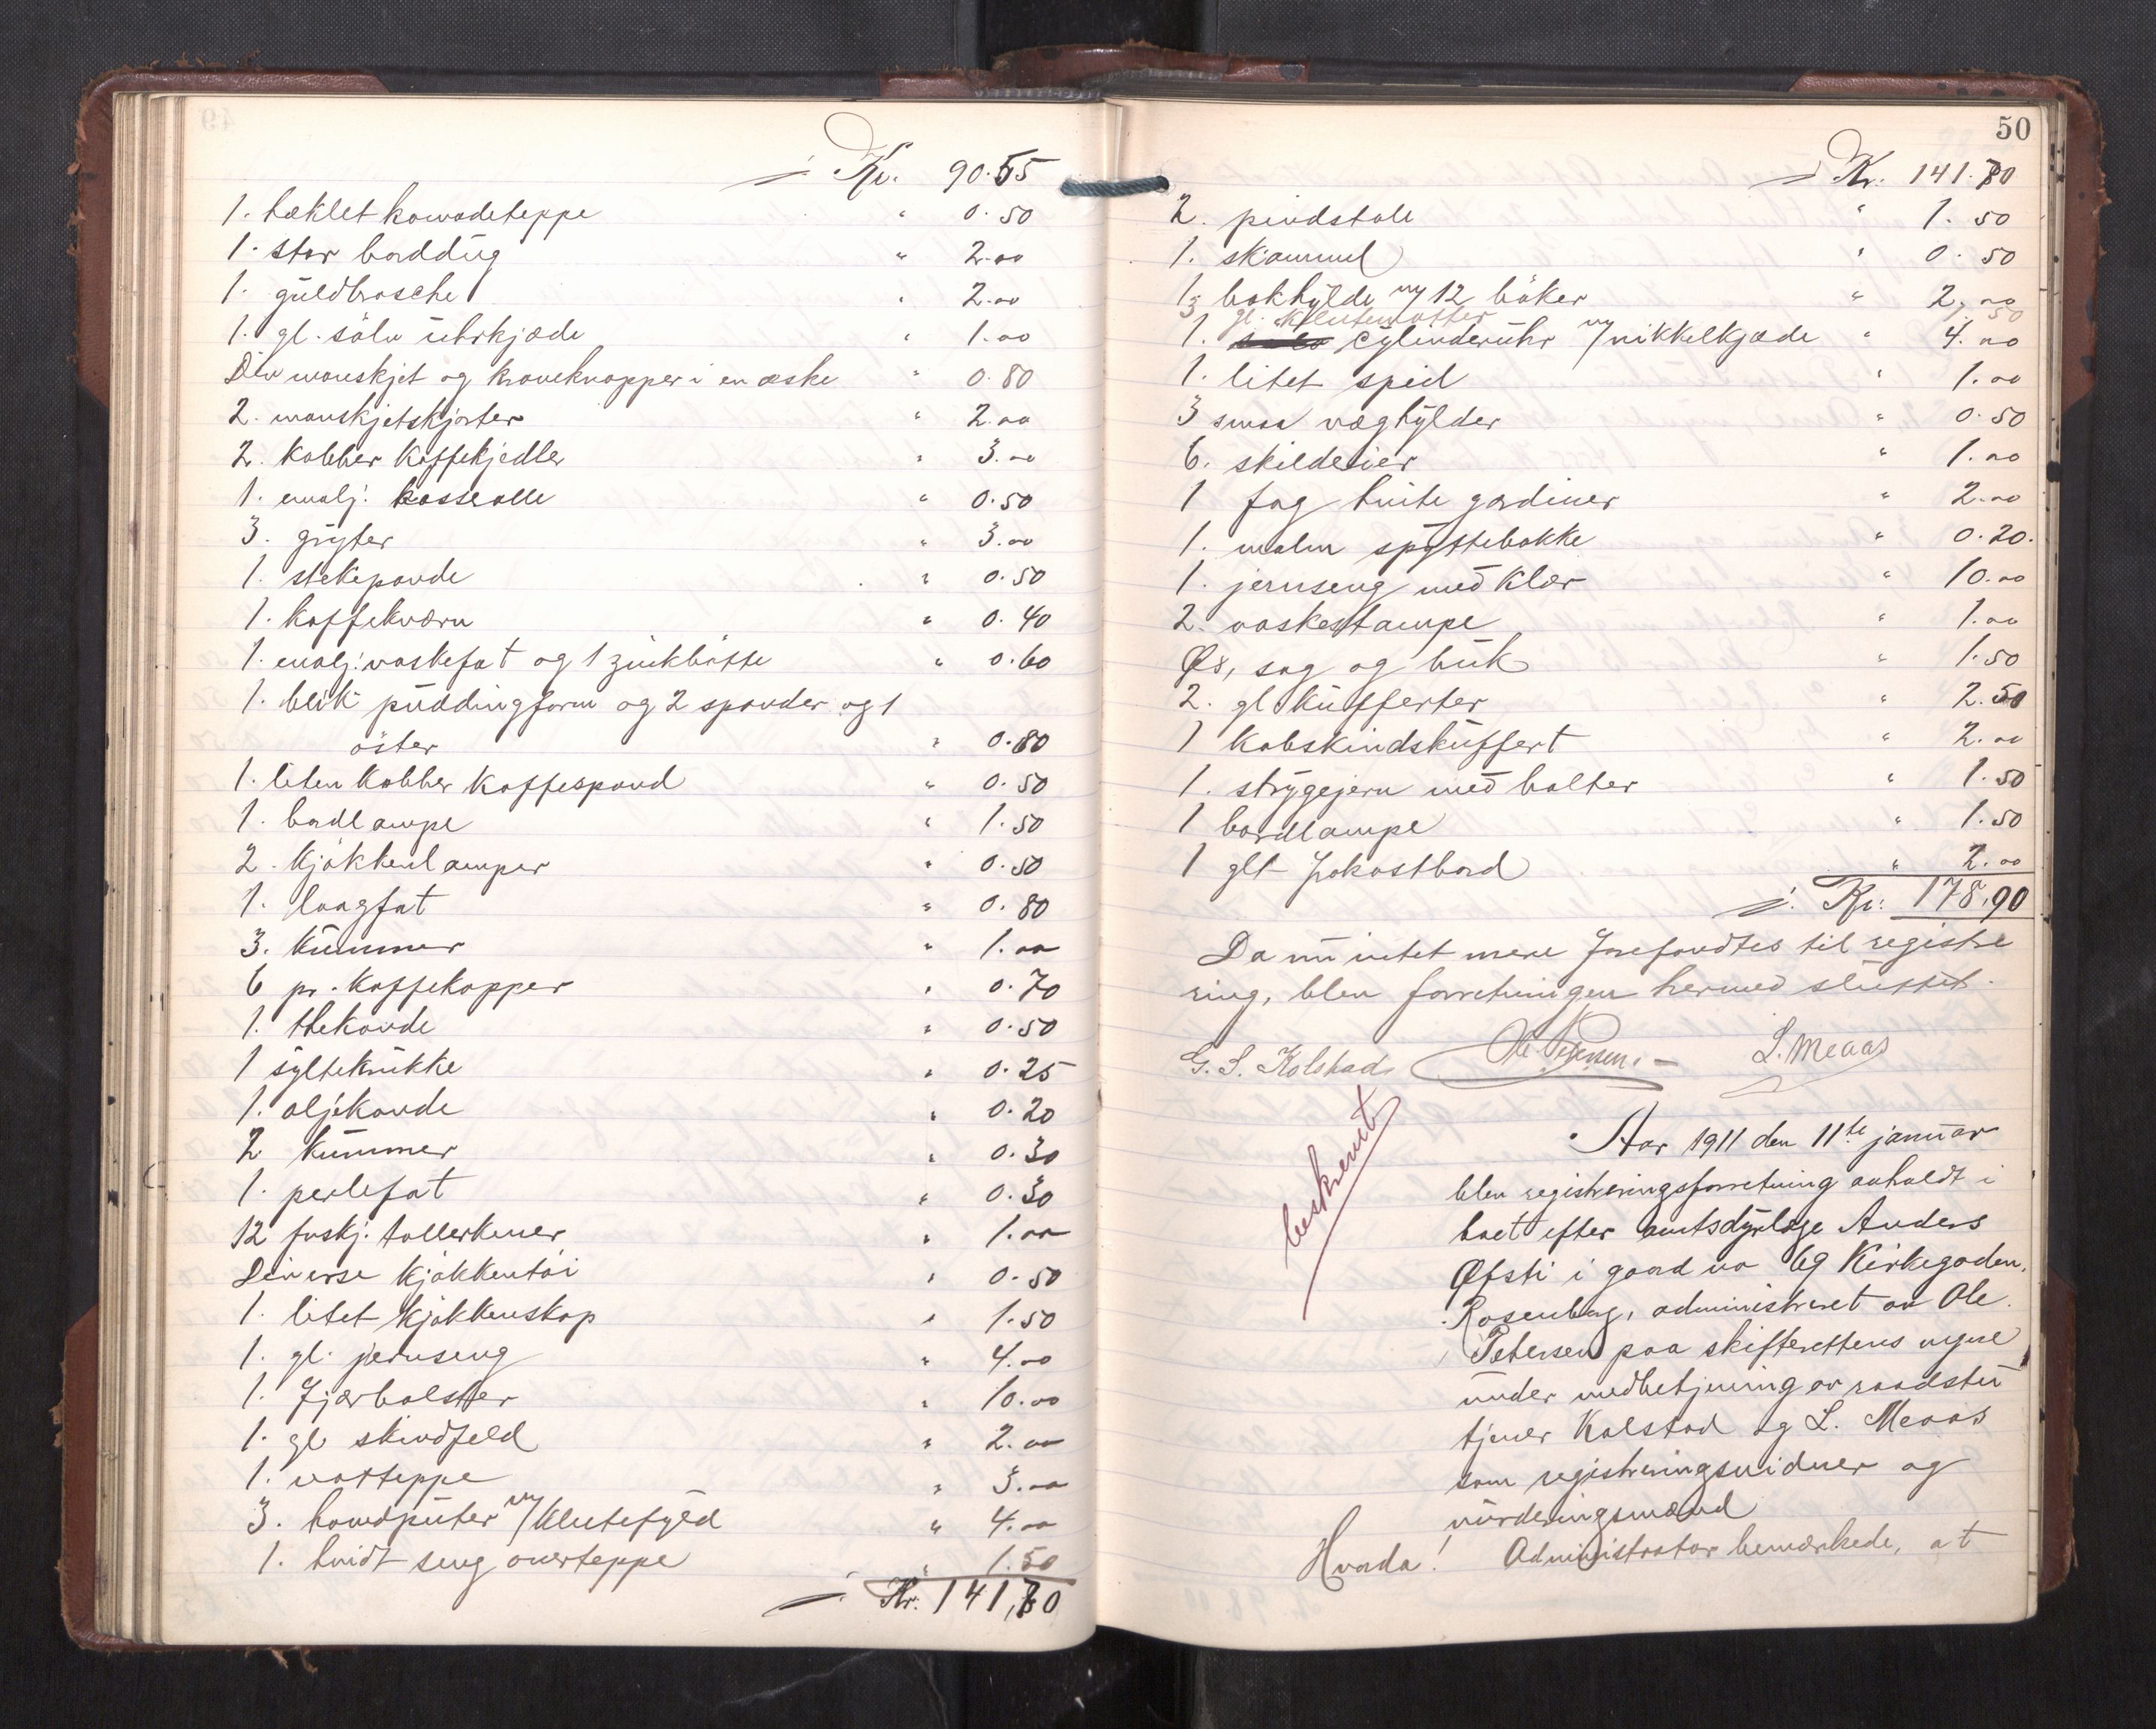 Kr. 90.55
1. hæklet komodeteppe " 0.50
1. stor borddug " 2.00
1. guldbrosche " 2.00
1. gl. sölv uhrkjæde " 1.00
Div manskjet og kraveknapper i en æske " 0.80
2. manskjetskjorter " 2.00
2. Kobber Kaffekjedler " 3.00
1. emalj. kasserolle " 0.50
3. gryter " 3.00
1. stekepande " 0.50
1. kaffekværn " 0.40
1. emalj. vaskefat og 1 zinkbötte " 0.60
1. blik puddingform og 2 spander og 1
öster " 0.80
1. liten Kobber Kaffespand " 0.50
1. bordlampe " 1.50
2. Kjökkenlamper " 0.50
1. langfat " 0.80
3. Kummer " 1.00
6 pr. Kaffekopper " 0.70
1. thekande " 0.50
1 syltekrukke " 0.25
1. oljekande " 0.20
2 kummer " 0.30
1. perlefat " 0.30
12 forskj. tallerkener " 1.00
Diverse Kjökkentöi " 0.50
1. litet Kjökkenskap " 1.50
1. gl. jernseng " 4.00
1. Fjærbolster " 10.00
1. gl skindfeld " 2.00
1. vatteppe " 3.00
3. hovedputer m/ klutefyld " 4.00
1. hvidt seng overteppe " 1.50
Kr. 141,80
50
Kr. 141.80
2. pindstole " 1.50
1. skammel " 0.50
1. bokhylde m/ 12 böker " 2.00
3 gl. Klutematter 50
1. cylinderuhr m/ nikkelkjæde " 4.00
1. litet speil " 1.00
3 smaa væghylder " 0.50
6. skilderier " 1.00
1 fag hvite gardiner " 2.00
1. malm spyttebakke " 0.20.
1. jernseng med Klær " 10.00
2. vaskestampe " 1.00
Øx, sag og buk " 1.50
2. gl Kufferter " 2.50
1 Kobskindskuffert " 2.00
1. strygejern med bolter " 1.50
1 bordlampe " 1.50
1 glt frokostbord " 2.00
Kr. 178,90
Da nu intet mere forefandtes til registre
ring, blev forretningen hermed sluttet.
G. S. Kolstad Ole Petersen. L. Meaas
beskrevet
Aar 1911 den 11te januar
blev registreringsforretning avholdt i
boet efter amtsdyrlæge Anders
Øfsti i gaard no 69 Kirkegaden,
Rosenborg, administreret av Ole
Petersen paa skifterettens vegne
under medbetjening av raadstu
tjener Kolstad og L. Meaas
som registreringsvidner og
vurderingsmænd
Hvorda! Administrator bemærkede, at